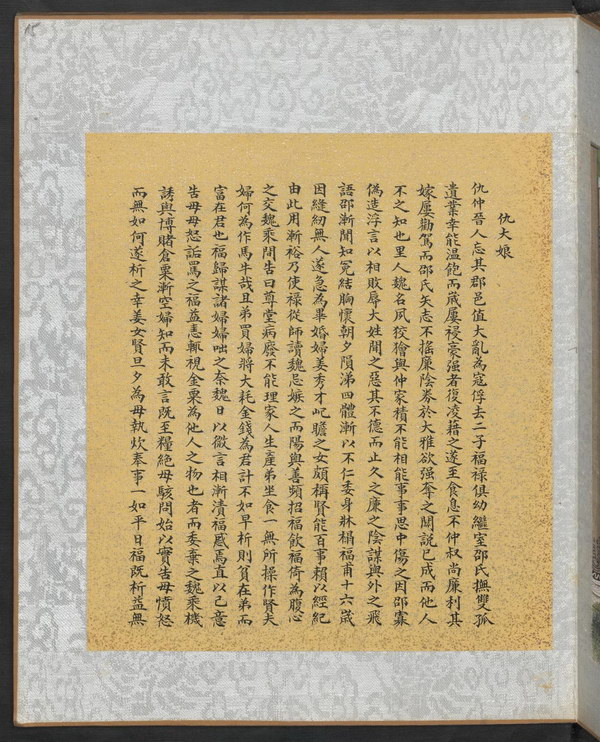 15
仇大娘
仇仲晉人忘其郡邑值大亂為寇俘去二子福祿俱幼繼室邵氏撫雙孤
遺業幸能溫飽而歲屢祲豪强者復凌藉之遂至食息不仲叔尚廉利其
嫁屢勸駕而邵氏矢志不搖廉陰券於大雅欲强奪之闗說已成而他人
不之知也里人魏名夙狡獪與仲家積不能相能事事思中傷之因邵寡
偽造浮言以相敗辱大姓聞之惡其不德而止久之廉之陰謀與外之飛
語邵漸聞知冤結胸懷朝夕隕涕四體漸以不仁委身牀榻福甫十六歲
因縫紉無人遂急為畢婚婦姜秀才屺瞻之女頗稱賢能百事賴以經紀
由此用漸裕乃使祿從師讀魏忌嫉之而陽與善頻招福飲福倚為腹心
之交魏乘間告曰尊堂病廢不能理家人生產弟坐食一無所操作賢夫
婦何為作馬牛哉且弟買婦將大耗金錢為君計不如早析則貧在弟而
富在君也福歸謀諸婦婦咄之奈魏日以微言相漸漬福惑焉直以己意
告母母怒詬罵之福益恚輒視金粟為他人之物也者而委棄之魏乘機
誘與博賭倉粟漸空婦知而未敢言既至糧絕母駭問始以實告母憤怒
而無如何遂析之幸姜女賢旦夕為母執炊奉事一如平日福既析益無